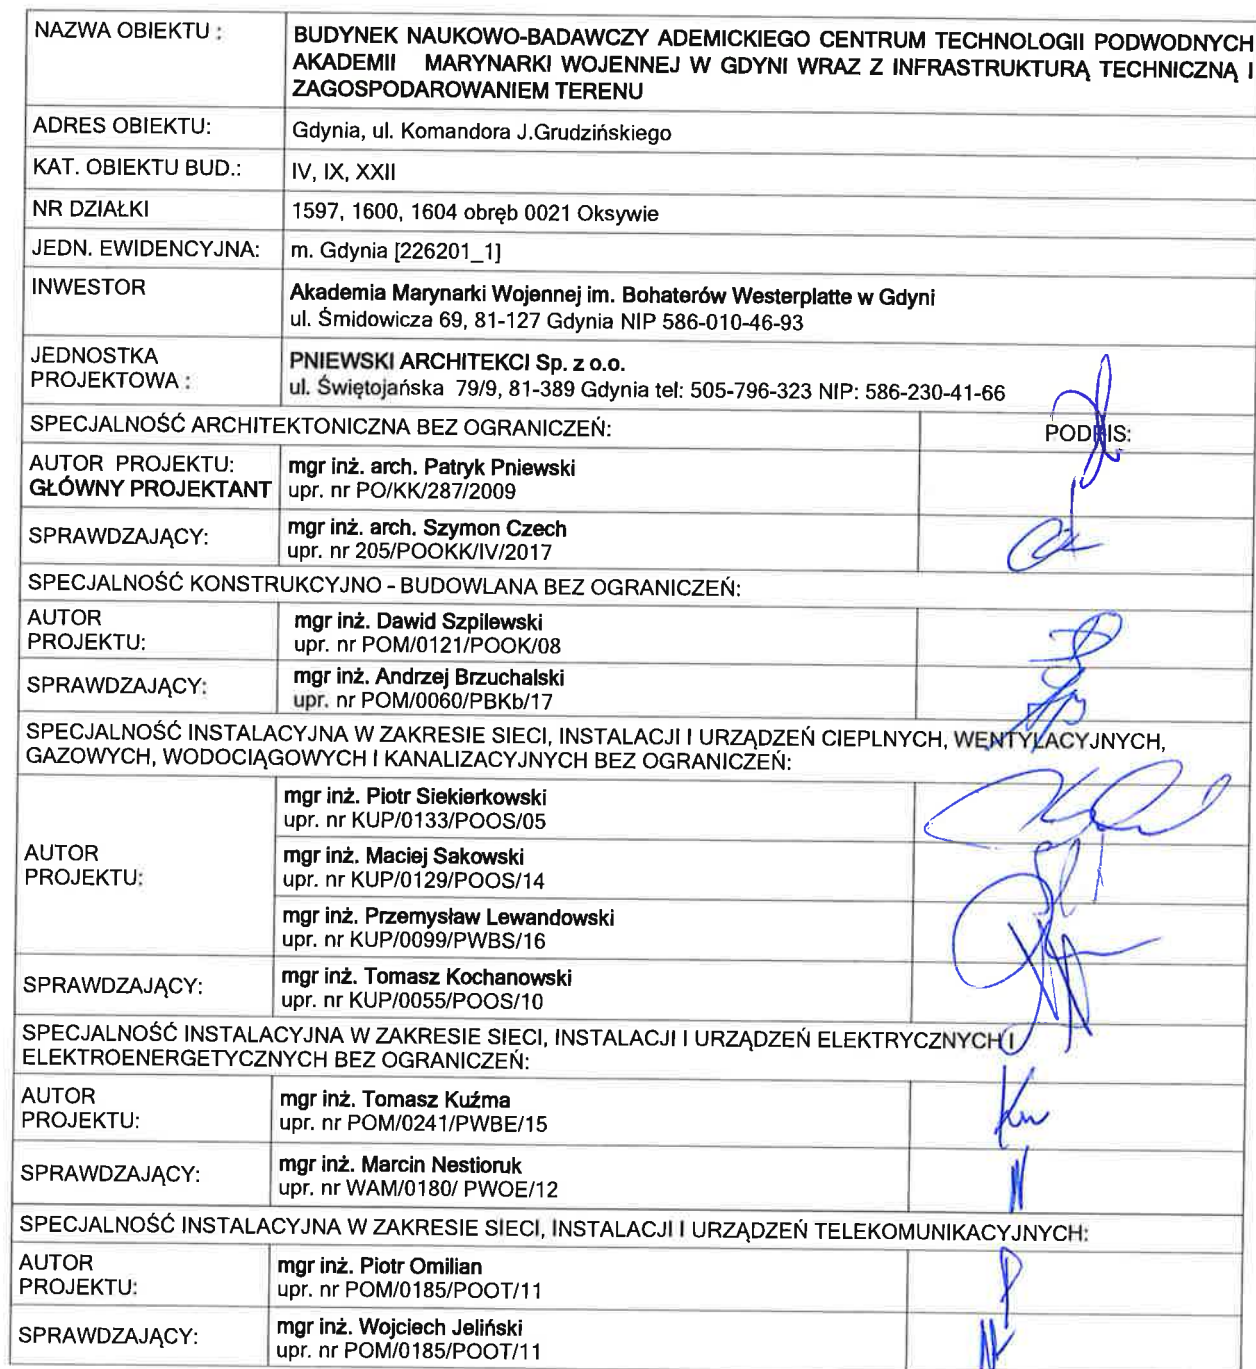 NAZWA OBIEKTU :
BUDYNEK NAUKOWO-BADAWCZY ADEMICKIEGO CENTRUM TECHNOLOGII PODWODNYCH
AKADEMII MARYNARKI WOJENNEJ W GDYNI WRAZ Z INFRASTRUKTURĄ TECHNICZNĄ I
ZAGOSPODAROWANIEM TERENU
ADRES OBIEKTU:
Gdynia, ul. Komandora J.Grudzińskiego
KAT. OBIEKTU BUD.:
IV, IX, XXII
NR DZIAŁKI
1597, 1600, 1604 obręb 0021 Oksywie
JEDN. EWIDENCYJNA:
m. Gdynia [226201_1]
INWESTOR
Akademia Marynarki Wojennej im. Bohaterów Westerplatte w Gdyni
ul. Śmidowicza 69, 81-127 Gdynia NIP 586-010-46-93
JEDNOSTKA
PROJEKTOWA :
PNIEWSKI ARCHITEKCI Sp. z o.o.
ul. Świętojańska 79/9, 81-389 Gdynia tel: 505-796-323 NIP: 586-230-41-66
SPECJALNOŚĆ ARCHITEKTONICZNA BEZ OGRANICZEŃ:
PODPIS:
AUTOR PROJEKTU:
GŁÓWNY PROJEKTANT
mgr inż. arch. Patryk Pniewski
upr. nr PO/KK/287/2009
SPRAWDZAJĄCY:
mgr inż. arch. Szymon Czech
upr. nr 205/POOKK/IV/2017
SPECJALNOŚĆ KONSTRUKCYJNO - BUDOWLANA BEZ OGRANICZEŃ:
AUTOR
PROJEKTU:
mgr inż. Dawid Szpilewski
upr. nr POM/0121/POOK/08
SPRAWDZAJĄCY:
mgr inż. Andrzej Brzuchalski
upr. nr POM/0060/PBKb/17
SPECJALNOŚĆ INSTALACYJNA W ZAKRESIE SIECI, INSTALACJI I URZĄDZEŃ CIEPLNYCH, WENTYLACYJNYCH,
GAZOWYCH, WODOCIĄGOWYCH I KANALIZACYJNYCH BEZ OGRANICZEŃ:
AUTOR
PROJEKTU:
mgr inż. Piotr Siekierkowski
upr. nr KUP/0133/POOS/05
mgr inż. Maciej Sakowski
upr. nr KUP/0129/POOS/14
mgr inż. Przemysław Lewandowski
upr. nr KUP/0099/PWBS/16
SPRAWDZAJĄCY:
mgr inż. Tomasz Kochanowski
upr. nr KUP/0055/POOS/10
SPECJALNOŚĆ INSTALACYJNA W ZAKRESIE SIECI, INSTALACJI I URZĄDZEŃ ELEKTRYCZNYCH I
ELEKTROENERGETYCZNYCH BEZ OGRANICZEŃ:
AUTOR
PROJEKTU:
mgr inż. Tomasz Kuźma
upr. nr POM/0241/PWBE/15
SPRAWDZAJĄCY:
mgr inż. Marcin Nestioruk
upr. nr WAM/0180/ PWOE/12
SPECJALNOŚĆ INSTALACYJNA W ZAKRESIE SIECI, INSTALACJI I URZĄDZEŃ TELEKOMUNIKACYJNYCH:
AUTOR
PROJEKTU:
mgr inż. Piotr Omilian
upr. nr POM/0185/POOT/11
SPRAWDZAJĄCY:
mgr inż. Wojciech Jeliński
upr. nr POM/0185/POOT/11